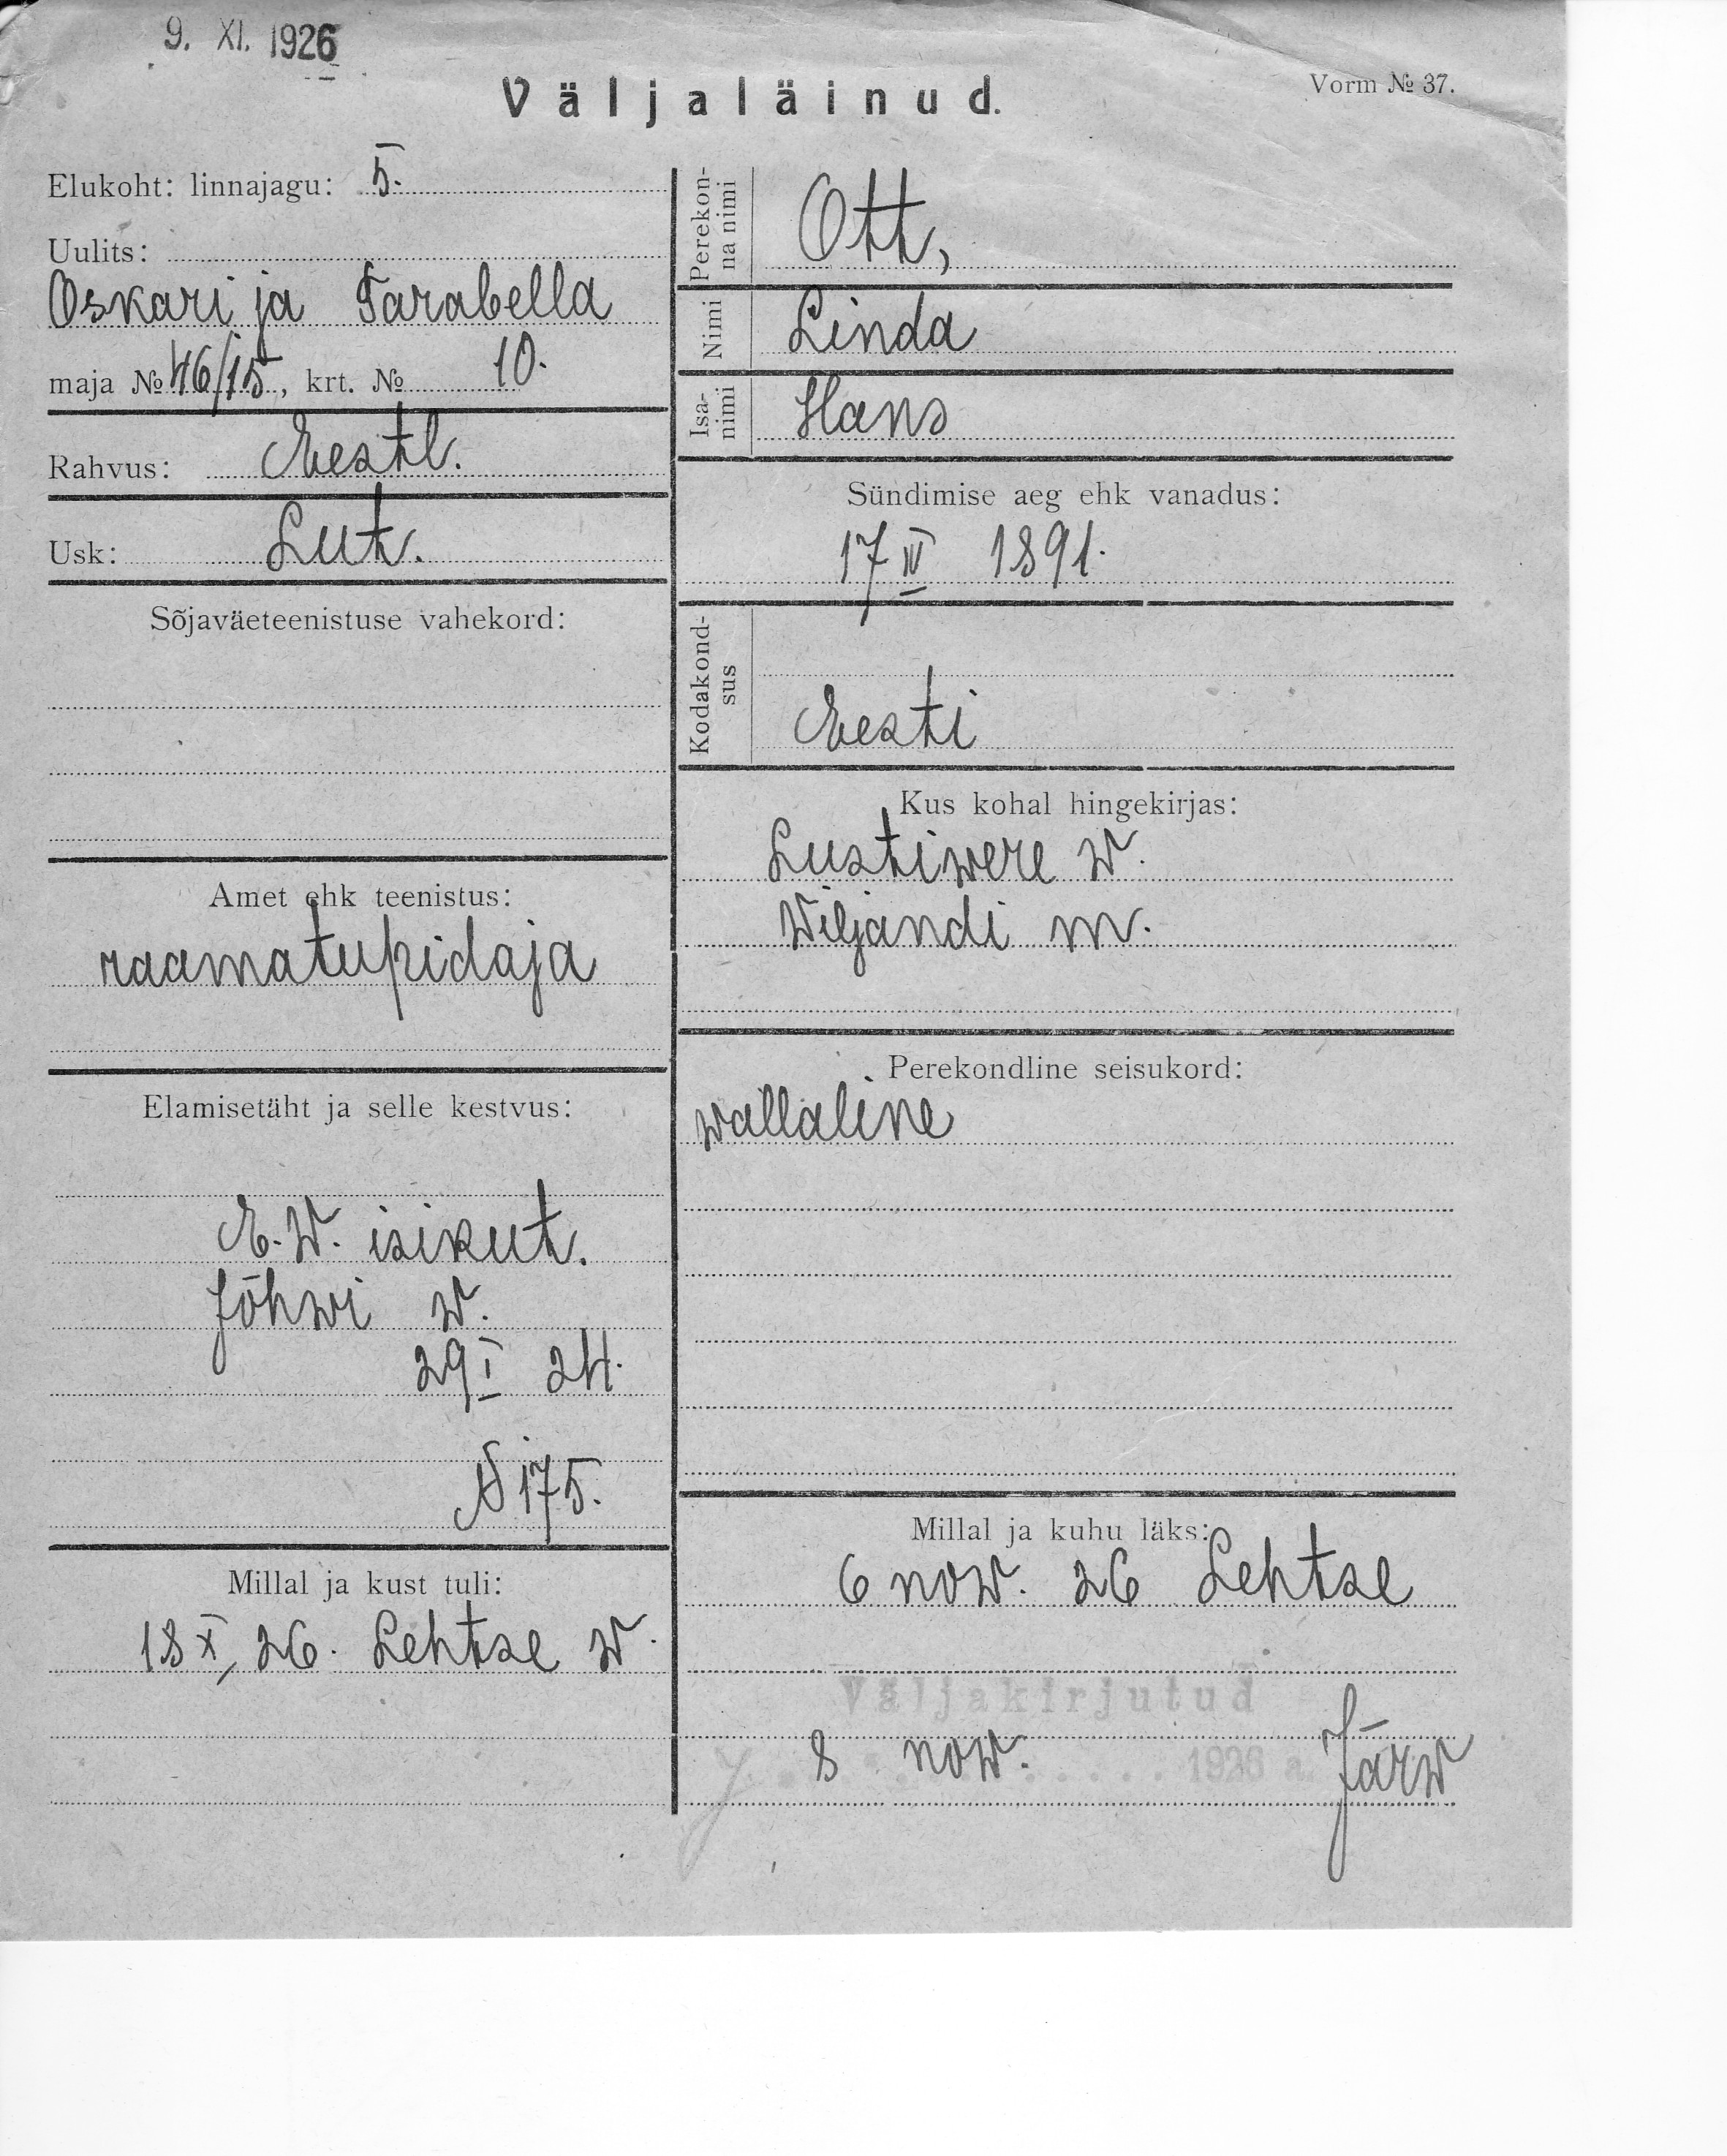 9. XI. 1926
Väljaläinud.
Vorm № 37.
Elukoht: linnajagu: 5.
Uulits:
Oskari ja Tarabella
maja № 46/15, krt. № 10.
Rahvus: Eestl.
Usk: Lut.
Sõjaväeteenistuse vahekord:
Amet ehk teenistus:
raamatupidaja
Elamisetäht ja selle kestvus:
E.W. isikut.
Jõhwi w.
29 I 24.
N 175.
Millal ja kust tuli:
18 X 26. Lehtse w.
Perekon-
na nimi
Ott,
Nimi
Linda
Isa-
nimi
Hans
Sündimise aeg ehk vanadus:
17 IV 1891.
Kodakond-
sus
Eesti
Kus kohal hingekirjas:
Lustiwere w.
Wiljandi m.
Perekondline seisukord:
wallaline
Millal ja kuhu läks:
6 now. 26 Lehtse
Väljakirjutud
8 now. 1926 a. Järw